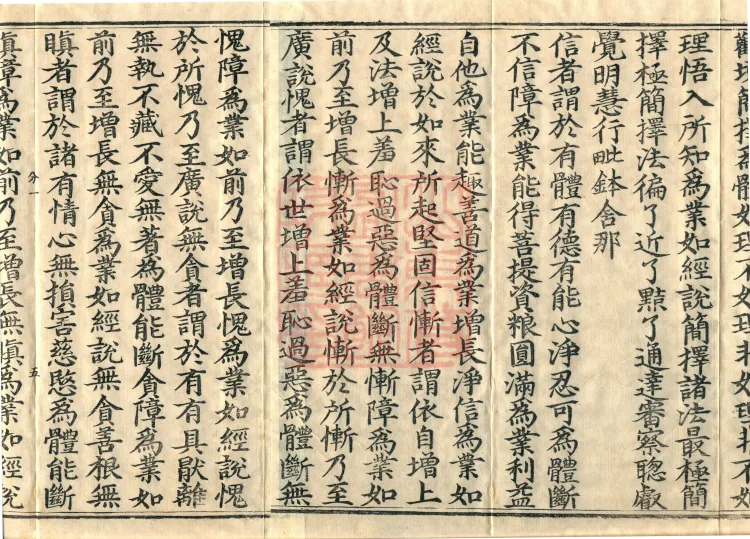 觀境簡擇爲體如理不如理非如理非不如
理悟入所知爲業如經說簡擇諸法最極簡
擇極簡擇法徧了近了黠了通達審察聰叡
覺明慧行毗鉢舍那
信者謂於有體有德有能心淨忍可爲體斷
不信障爲業能得菩提資粮圓滿爲業利益
自他爲業能趣善道爲業增長淨信爲業如
經說於如來所起堅固信慚者謂依自增上
及法增上羞恥過惡爲體斷無慚障爲業如
前乃至增長慚爲業如經說慚於所慚乃至
廣說愧者謂依世增上羞恥過惡爲體斷無
愧障爲業如前乃至增長愧爲業如經說愧
於所愧乃至廣說無貪者謂於有有具猒離
無執不藏不愛無著爲體能斷貪障爲業如
前乃至增長無貪爲業如經說無貪善根無
瞋者謂於諸有情心無損害慈愍爲體能斷
五
瞋障爲業如前乃至增長無瞋爲業如經說